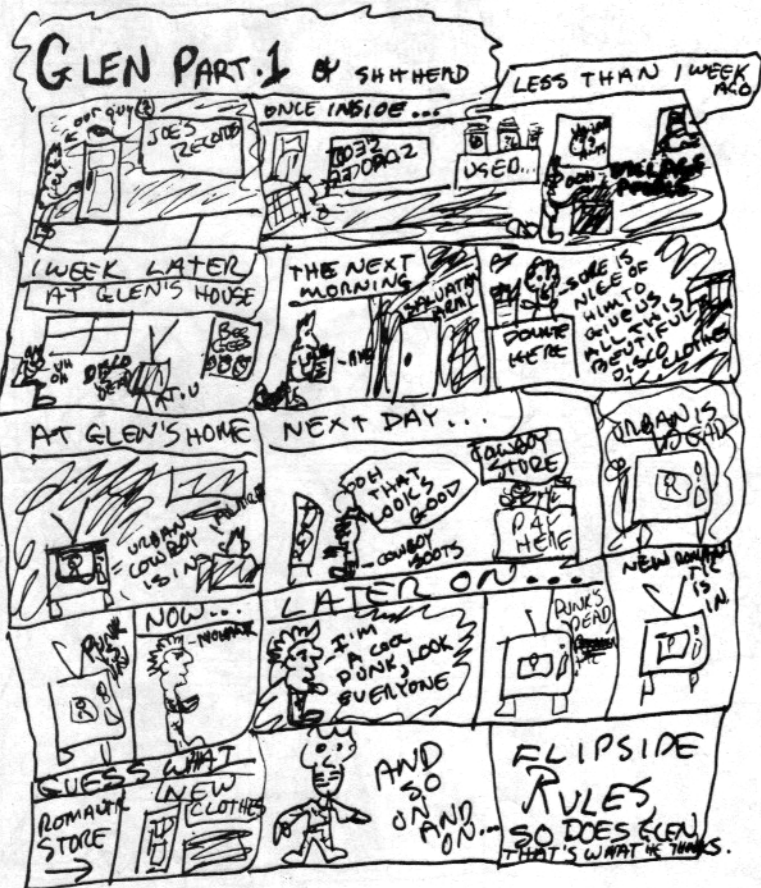 GLEN PART.1 BY SHITHEAD
LESS THAN 1 WEEK
AGO
OUR GUY
JOE'S
RECORDS
ONCE INSIDE...
USED...
OOH
VILLAGE
PEOPLE
1 WEEK LATER
AT GLEN'S HOUSE
UH
OH
DISCO
DEAD
BEE
GEES
THE NEXT
MORNING
SALVATION
ARMY
DONATE
HERE
SURE IS
NICE OF
HIM TO
GIVE US
ALL THIS
BEAUTIFUL
DISCO CLOTHES
AT GLEN'S HOME
URBAN
COWBOY
IS IN
NEXT DAY...
OOH
THAT
LOOKS
GOOD
COWBOY
BOOTS
COWBOY
STORE
PAY
HERE
URBAN IS
DEAD
PUNK
NOW...
MOHAWK
LATER ON...
I'M
A COOL
PUNK, LOOK
EVERYONE
PUNK'S
DEAD
NEW ROMAN
TIC
IS
IN.
GUESS WHAT
ROMANTIC
STORE
NEW
CLOTHES
AND
SO
ON
AND
ON...
FLIPSIDE
RULES,
SO DOES GLEN
THAT'S WHAT HE THINKS.